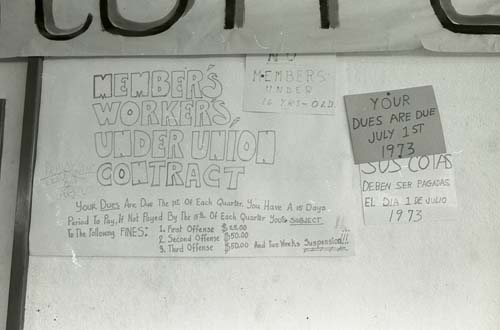 MEMBER'S
WORKERS,
UNDER UNION
CONTRACT
YOUR DUES Are Due The 1st Of Each Quarter. You Have A 15 Days
Period To Pay, If Not Payed By The 15th Of Each Quarter Your SUBJECT
To The Following FINES:
1. First Offense $25.00
2. Second Offense $50.00
3. Third Offense $50.00 And Two Weeks Suspension!!!
NO
MEMBERS
UNDER
16 YRS-OLD
YOUR
DUES ARE DUE
JULY 1ST
1973
SUS COTAS
DEBEN SER PAGADAS
EL DIA 1 DE JULIO
1973